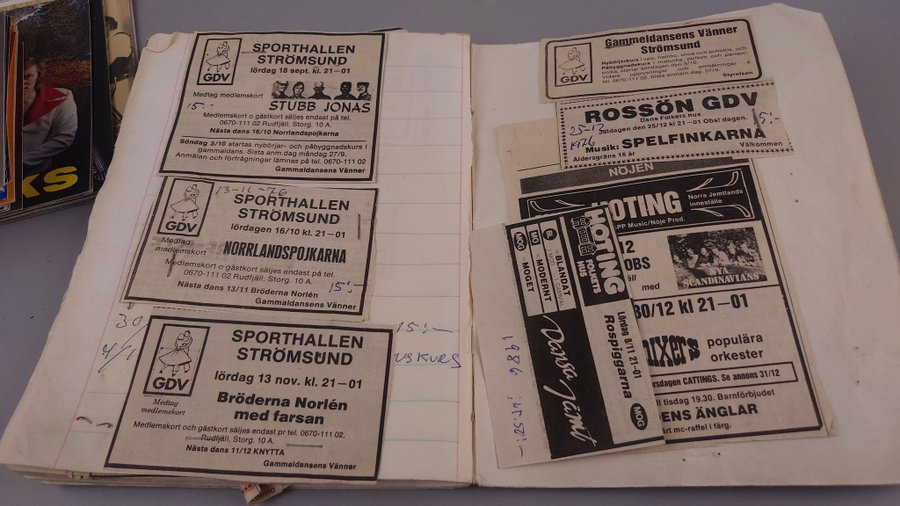 KS
GDV
SPORTHALLEN
STRÖMSUND
lördag 18 sept. kl. 21—01
Medtag medlemskort
15:-
STUBB JONAS
Medlemskort o gästkort säljes endast på tel.
0670-111 02 Rudfjäll, Storg. 10 A.
Nästa dans 16/10 Norrlandspojkarna
Söndag 3/10 startas nybörjar- och påbyggnadskurs i
gammeldans. Sista anm.dag måndag 27/9.
Anmälan och förfrågningar lämnas på tel. 0670-111 02
Gammeldansens Vänner
13-11-76
GDV
SPORTHALLEN
STRÖMSUND
lördagen 16/10 kl. 21—01
Medtag
medlemskort
NORRLANDSPOJKARNA
Medlemskort o gästkort säljes endast på tel
0670-111 02 Rudfjäll, Storg. 10 A.
15:-
Nästa dans 13/11 Bröderna Norlén
Gammeldansens Vänner
30
15:-
GDV
SPORTHALLEN
STRÖMSUND
lördag 13 nov. kl. 21—01
Medtag
medlemskort
Bröderna Norlén
med farsan
Medlemskort och gästkort säljes endast pr tel. 0670-111 02,
Rudfjäll, Storg. 10 A.
Nästa dans 11/12 KNYTTA
Gammeldansens Vänner
Gammeldansens Vänner
Strömsund
GDV
Styrelsen
ROSSÖN GDV
Folkets hus
Juldagen den 25/12 kl 21—01 Obs! dagen.
15:-
Musik: SPELFINKARNA
Åldersgräns 16 år
Välkommen
NÖJEN
HOTING
Norra Jemtlands
inneställe
PP Music/Nöje Prod.
12
OBS
till med
NYA
SCANDINAVIANS
30/12 kl 21—01
populära
orkester
rsdagen CATTINGS. Se annons 31/12
ll tisdag 19.30. Barnförbjudet
ENS ÄNGLAR
rt mc-raffel i färg.
HOTING
FOLKETS
HUS
Lördag 8/11 21-01
Rospiggarna
MOG
BL
MO
MOG
BLANDAT
MODERNT
MOGET
Dansa Jämt
1986